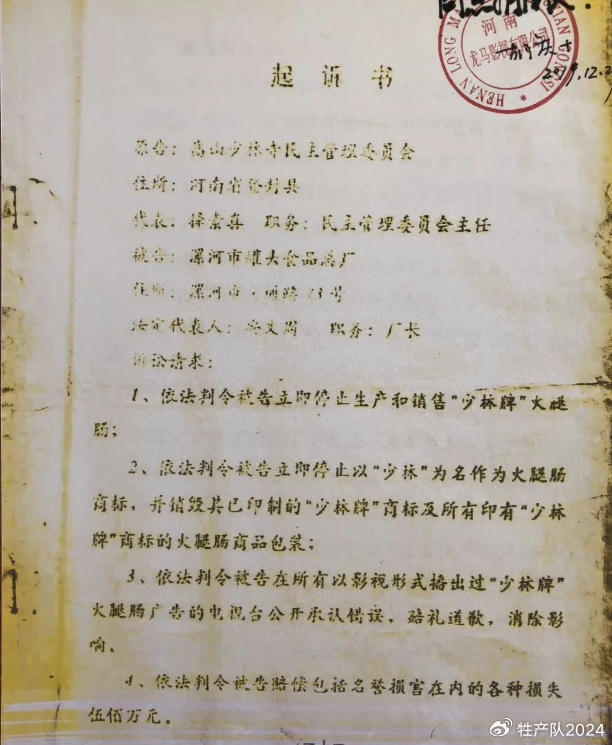 河南
龙马影视有限公司
HENAN LONG M
GONGSI
2019.12.2
起诉书
原告：嵩山少林寺民主管理委员会
住所：河南省登封县
代表：释素喜 职务：民主管理委员会主任
被告：漯河市罐头食品总厂
住所：漯河市 号
法定代表人： 文周 职务：厂长
诉讼请求：
1、依法判令被告立即停止生产和销售“少林牌”火腿
肠；
2、依法判令被告立即停止以“少林”为名作为火腿肠
商标，并销毁其已印制的“少林牌”商标及所有印有“少林
牌”商标的火腿肠商品包装；
3、依法判令被告在所有以影视形式播出过“少林牌”
火腿肠广告的电视台公开承认错误，赔礼道歉，消除影
响。
4、依法判令被告赔偿包括名誉损害在内的各种损失
伍佰万元。
－1－
牲产队2024